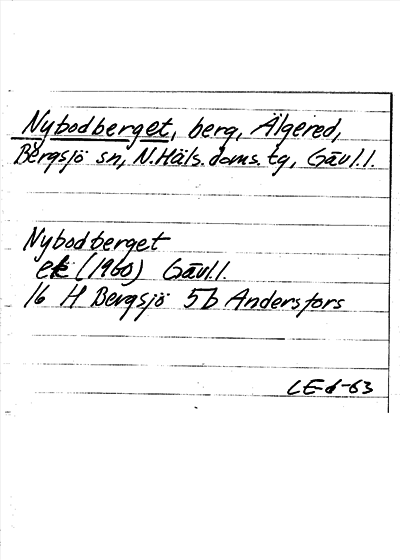 Nybodberget, berg, Älgered,
Bergsjö sn, N.Häls.doms.tg, Gävl.l.
Nybodberget
ek (1960) Gävl.l.
16 H Bergsjö 5b Andersfors
LEd-63